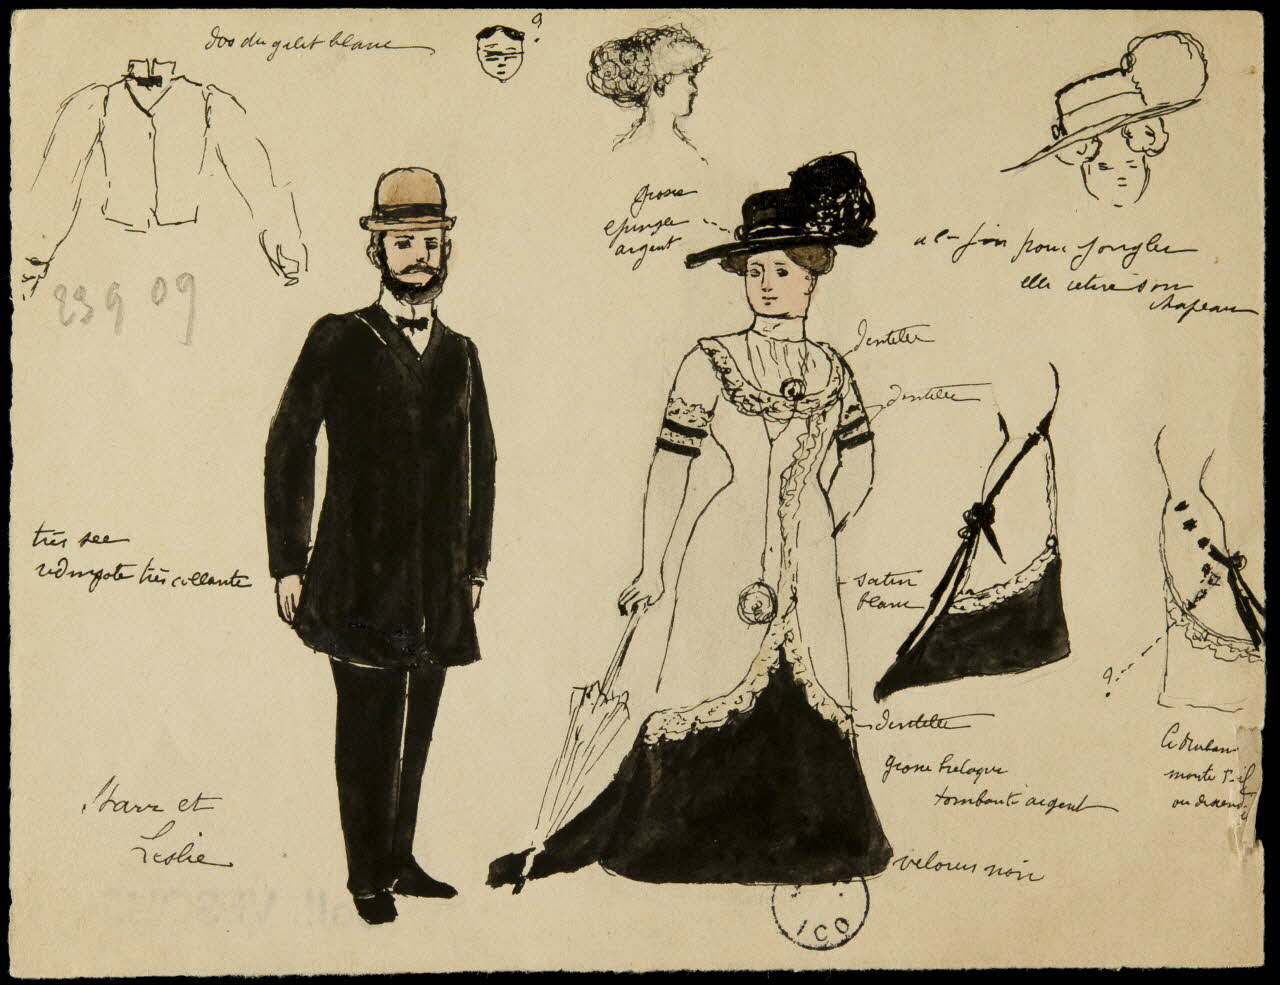 dos du gilet blanc
?
grosse
epingle
argent
a la fin pour jongler
elle retire son
chapeau
23 9 09
dentelle
dentelle
très sec
redingote très collante
satin
blanc
?
dentelle
Ce ruban
monte t-il
ou descend
grosse breloque
tombante argent
Starr et
Leslie
velours noir
ICO